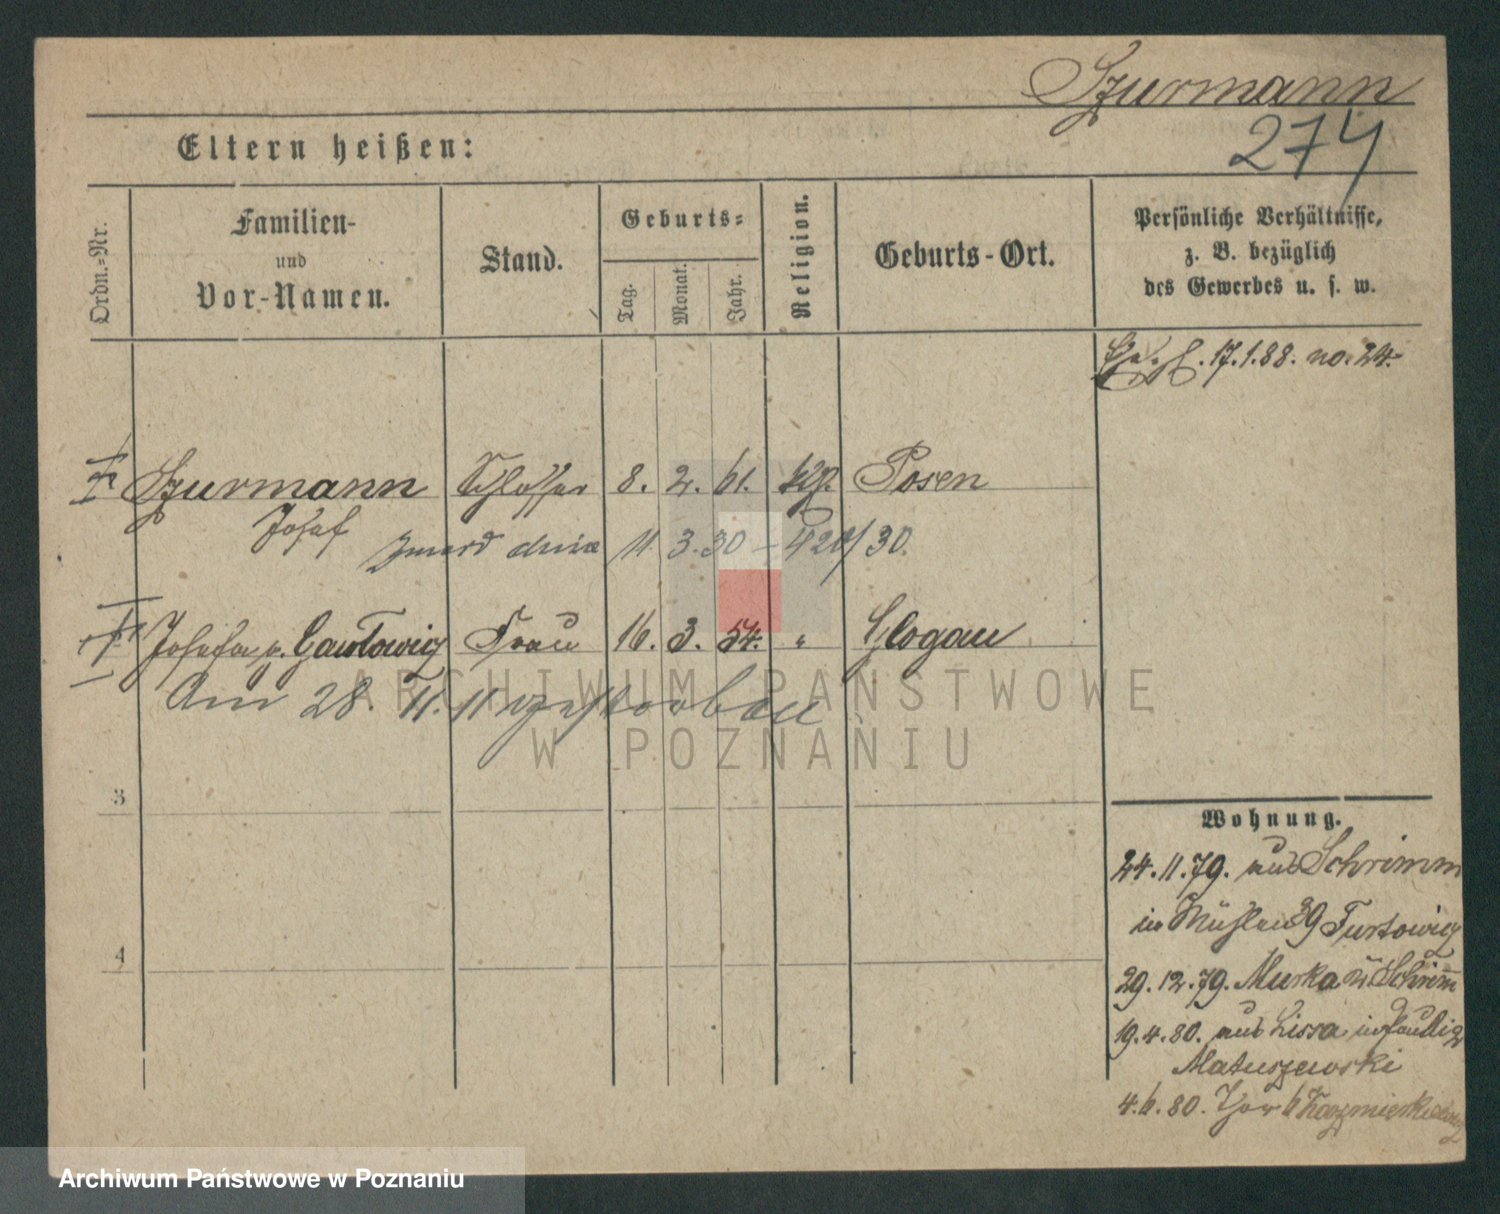 Szurmann
274
Eltern heißen:
Ordn.-Nr.
Familien-
und
Vor-Namen.
Stand.
Geburts-
Tag.
Monat.
Jahr.
Religion.
Geburts-Ort.
Persönliche Verhältnisse,
z. B. bezüglich
des Gewerbes u. s. w.
17.1.88. no. 24.
Szurmann Schlosser 8. 2. 61. Posen
Josef
zmarł dnia 11. 3. 30 - 420/30.
Josefa g. Gawlowicz Frau 16. 3. 54. " Glogau
Am 28. 11. 11 gestorben
3
4
Wohnung.
24.11.79. aus Schrimm
in Mühlen 39 Turtowicz
29.12.79. Murka n Schrimm
19.4.80. aus Lissa in
Matuszewski
4.6.80. Thor 6 Kazmierkiewicz
ARCHIWUM PAŃSTWOWE
W POZNANIU
Archiwum Państwowe w Poznaniu